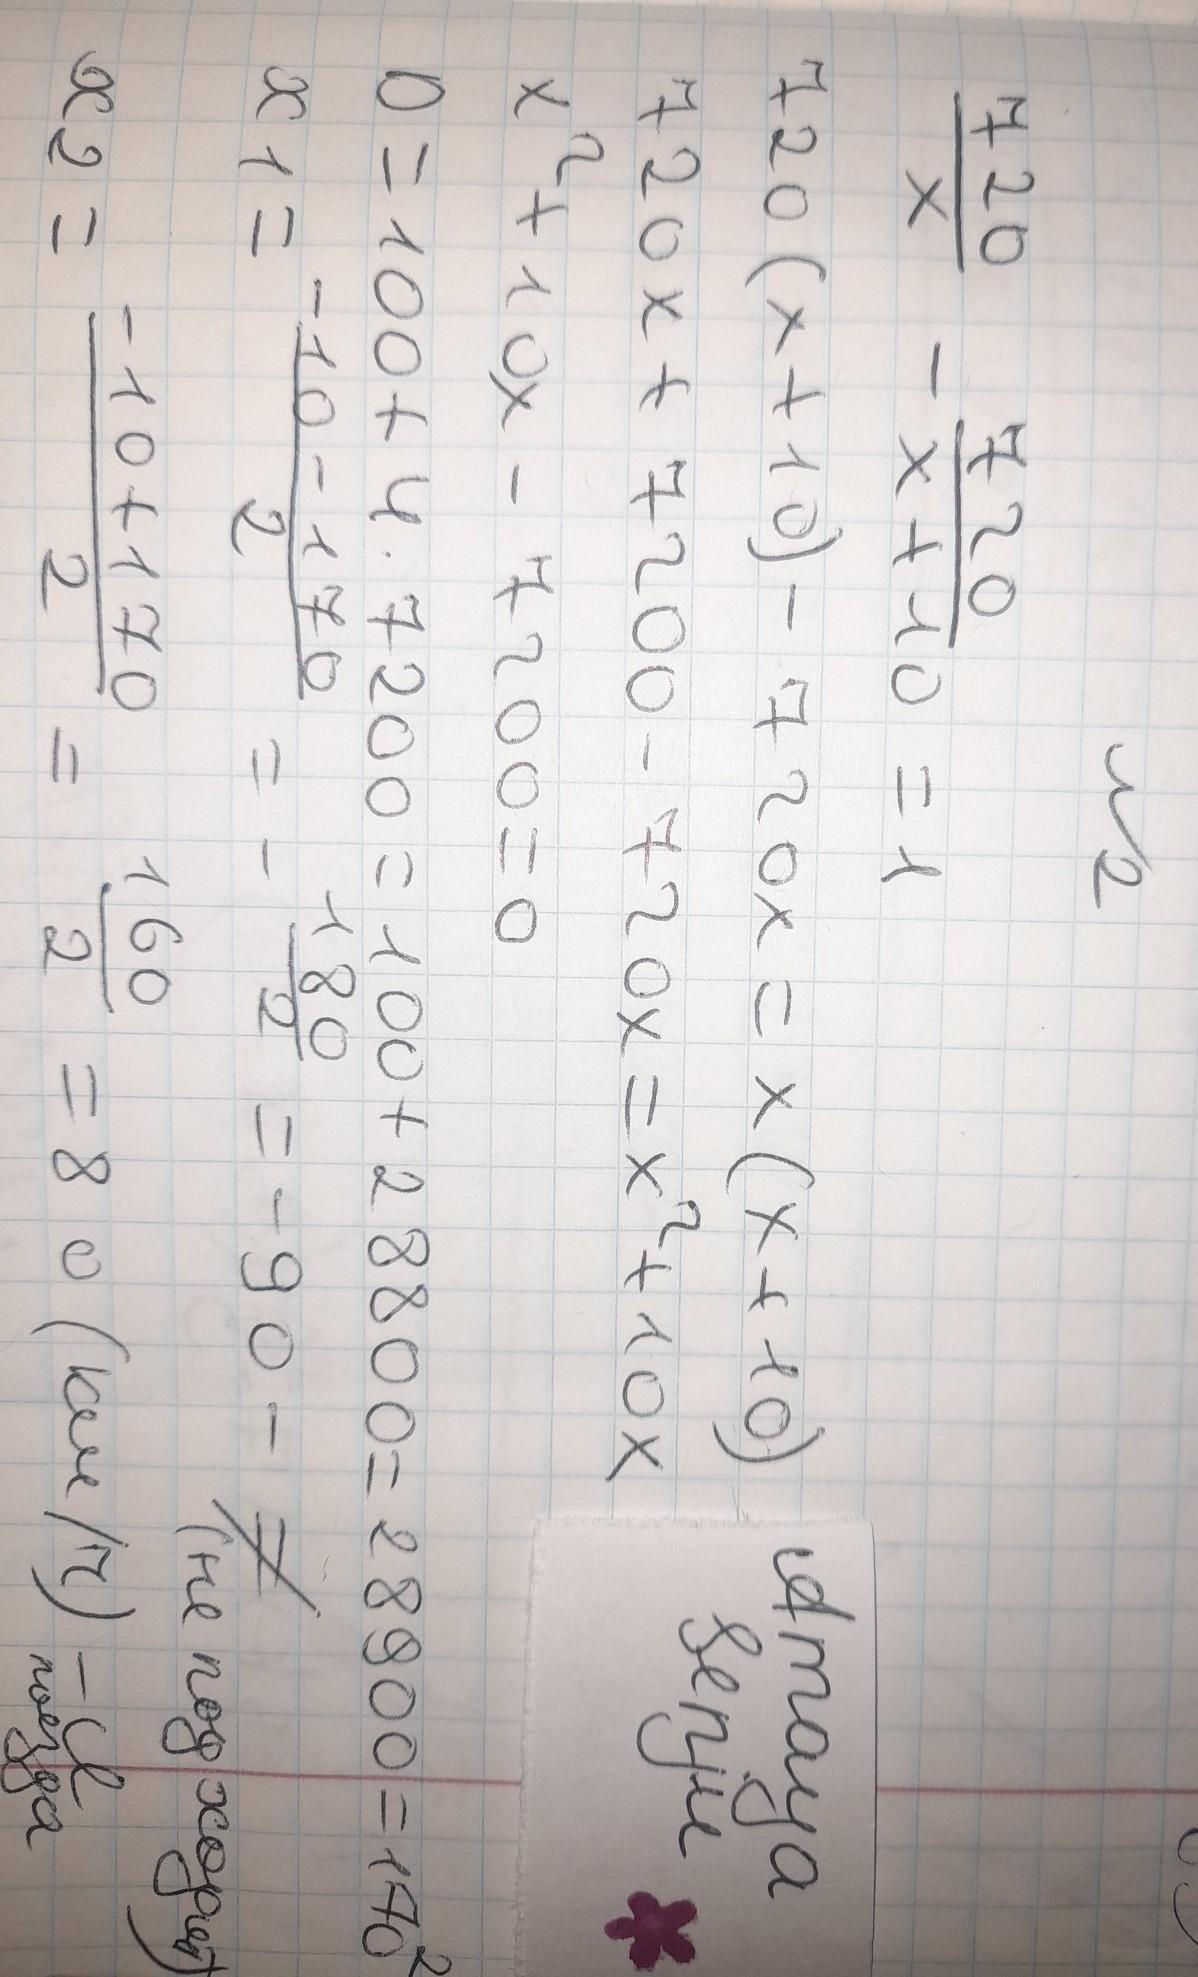 №2
720/x - 720/x+10 = 1
720(x+10) - 720x = x(x+10)
720x + 7200 - 720x = x²+10x
x²+10x - 7200 = 0
D = 100+4·7200 = 100+28800 = 28900 = 170²
x1 = -10-170/2 = -180/2 = -90 -
(не подходит)
x2 = -10+170/2 = 160/2 = 80 (км/ч) - V
поезда
Amaya
Senju